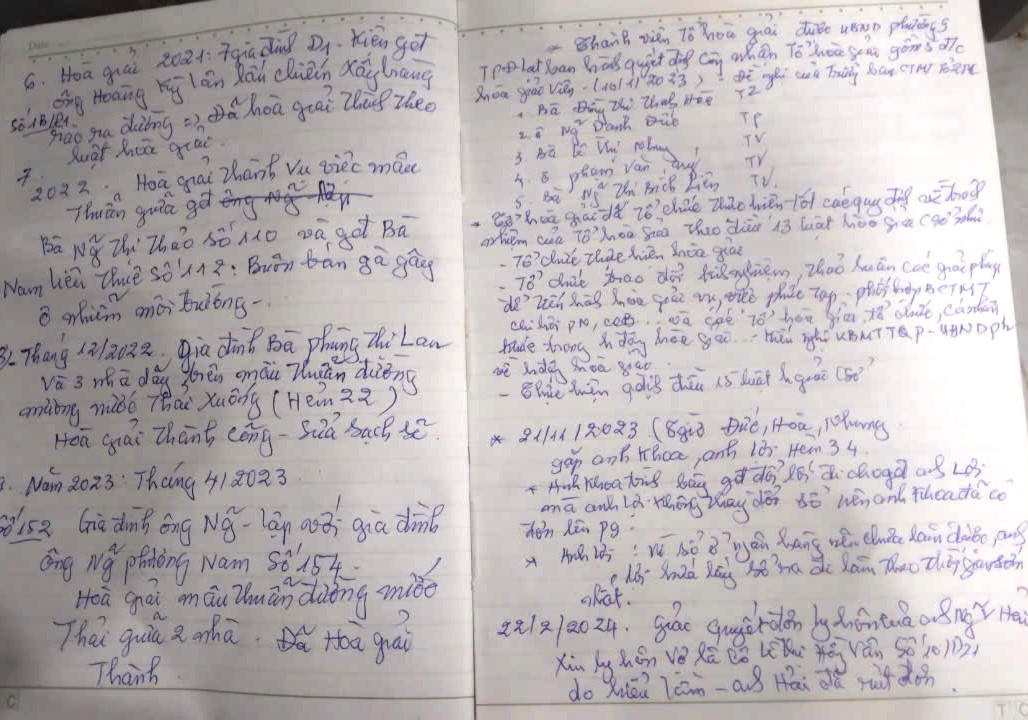 Date
6. Hoà giải 2021: 7 gia đình D1 - Kiên gđt
ông Hoàng Kỳ lân lấn chiến Xây hàng
Số 1B/D1 rào ra đường => Đã hoà giải thành theo
luật hoà giải.
7. 2022. Hoà giải thành vụ việc mâu
thuẫn giữa gđ ông Ng~ lập
Bà Ng~ Thị Thảo Số 110 và gđt Bà
Nam liên Thuê Số 112: Buôn bán gà gây
ô nhiễm môi trường -.
8/- Tháng 12/2022. Gia đình Bà phùng Thị Lan
Và 3 nhà dãy trên mâu thuẫn đường
mương nước Thải Xuống (Hẻm 22)
Hoà giải Thành công - Sửa Sạch sẽ.
Năm 2023: Tháng 4/2023
Số 152 Gia đình ông Ng~ - lập với gia đình
Ông Ng~ phương Nam Số 154.
Hoà giải mâu thuẫn đường nước
Thải giữa 2 nhà. Đã Hoà giải
Thành.
* Thành viên Tổ hoà giải được UBND phường 9
TP Đ lạt ban hành quyết địh công nhận Tổ hoà giải gồm 5 đ/c
hoà giải viên - (10/1/2023) - Đề nghị của Trưởng ban CTMT
1. Bà Đặng Thị Thanh Hoè TT
2. ô Ng~ Danh Đức TP
3. Bà Lê Thị Nhung TV
4. ô phạm Văn TV
5. Bà Ng~ Thị Bích Liên TV
* Tổ hoà giải đã tổ chức thực hiện tốt các quy địh về trách
nhiệm của tổ hoà giải theo điều 13 luật hoà giải cơ sở như.
- Tổ chức thực hiện hoà giải
- Tổ chức trao đổi kinh nghiệm, thảo luận các giải pháp
để tiến hành hoà giải vụ, việc phức tạp - phối hợp BCTMT
chi hội PN, CCB... và các tổ hoà giải tổ chức, cá nhân
khác trong h động hoà giải... Kiến nghị UBMTTQP - UBND ph
về hđộng hoà giải
- Thực hiện qđịh điều 15 luật h giải CSở
* 21/11/2023 (8giờ Đức, Hoà, Nhung
gặp anh Khoa, anh lời Hẻm 34.
* Anh Khoa trình bày gđ đổi lối đi cho gđ anh Lời
mà anh Lời không thay đổi sổ nên anh Khoa đã có
đơn lên P9.
* Anh lời: Vì sổ ở ngân hàng nên chưa làm được, anh
lời hứa lấy sổ ra đi làm theo thời gian sớm
nhất.
22/2/2024. Giải quyết đơn ly hôn của anh Ng~ V Hải
Xin ly hôn Vợ là Cô Lê Thị Hồng Vân Số 10/D21
do hiểu lầm - anh Hải đã rút đơn.